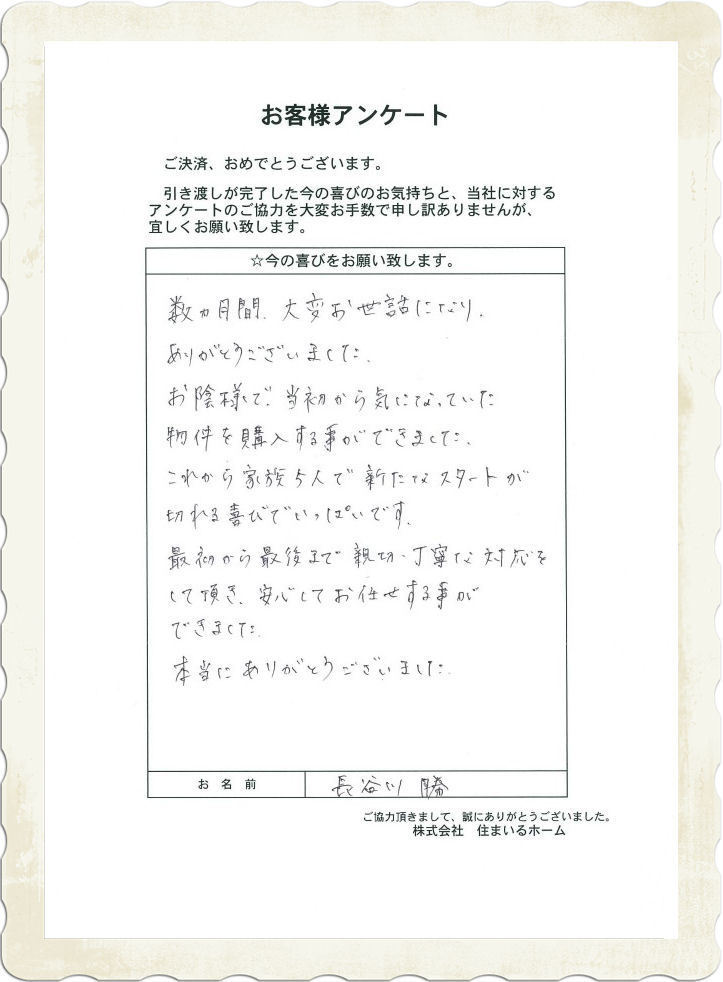 お客様アンケート
ご決済、おめでとうございます。
引き渡しが完了した今の喜びのお気持ちと、当社に対する
アンケートのご協力を大変お手数で申し訳ありませんが、
宜しくお願い致します。
☆今の喜びをお願い致します。
数ヵ月間、大変お世話になり、
ありがとうございました。
お陰様で、当初から気になっていた
物件を購入する事ができました。
これから家族5人で新たなスタートが
切れる喜びでいっぱいです。
最初から最後まで親切・丁寧な対応を
して頂き、安心してお任せする事が
できました。
本当にありがとうございました。
お名前
長谷川 勝
ご協力頂きまして、誠にありがとうございました。
株式会社 住まいるホーム